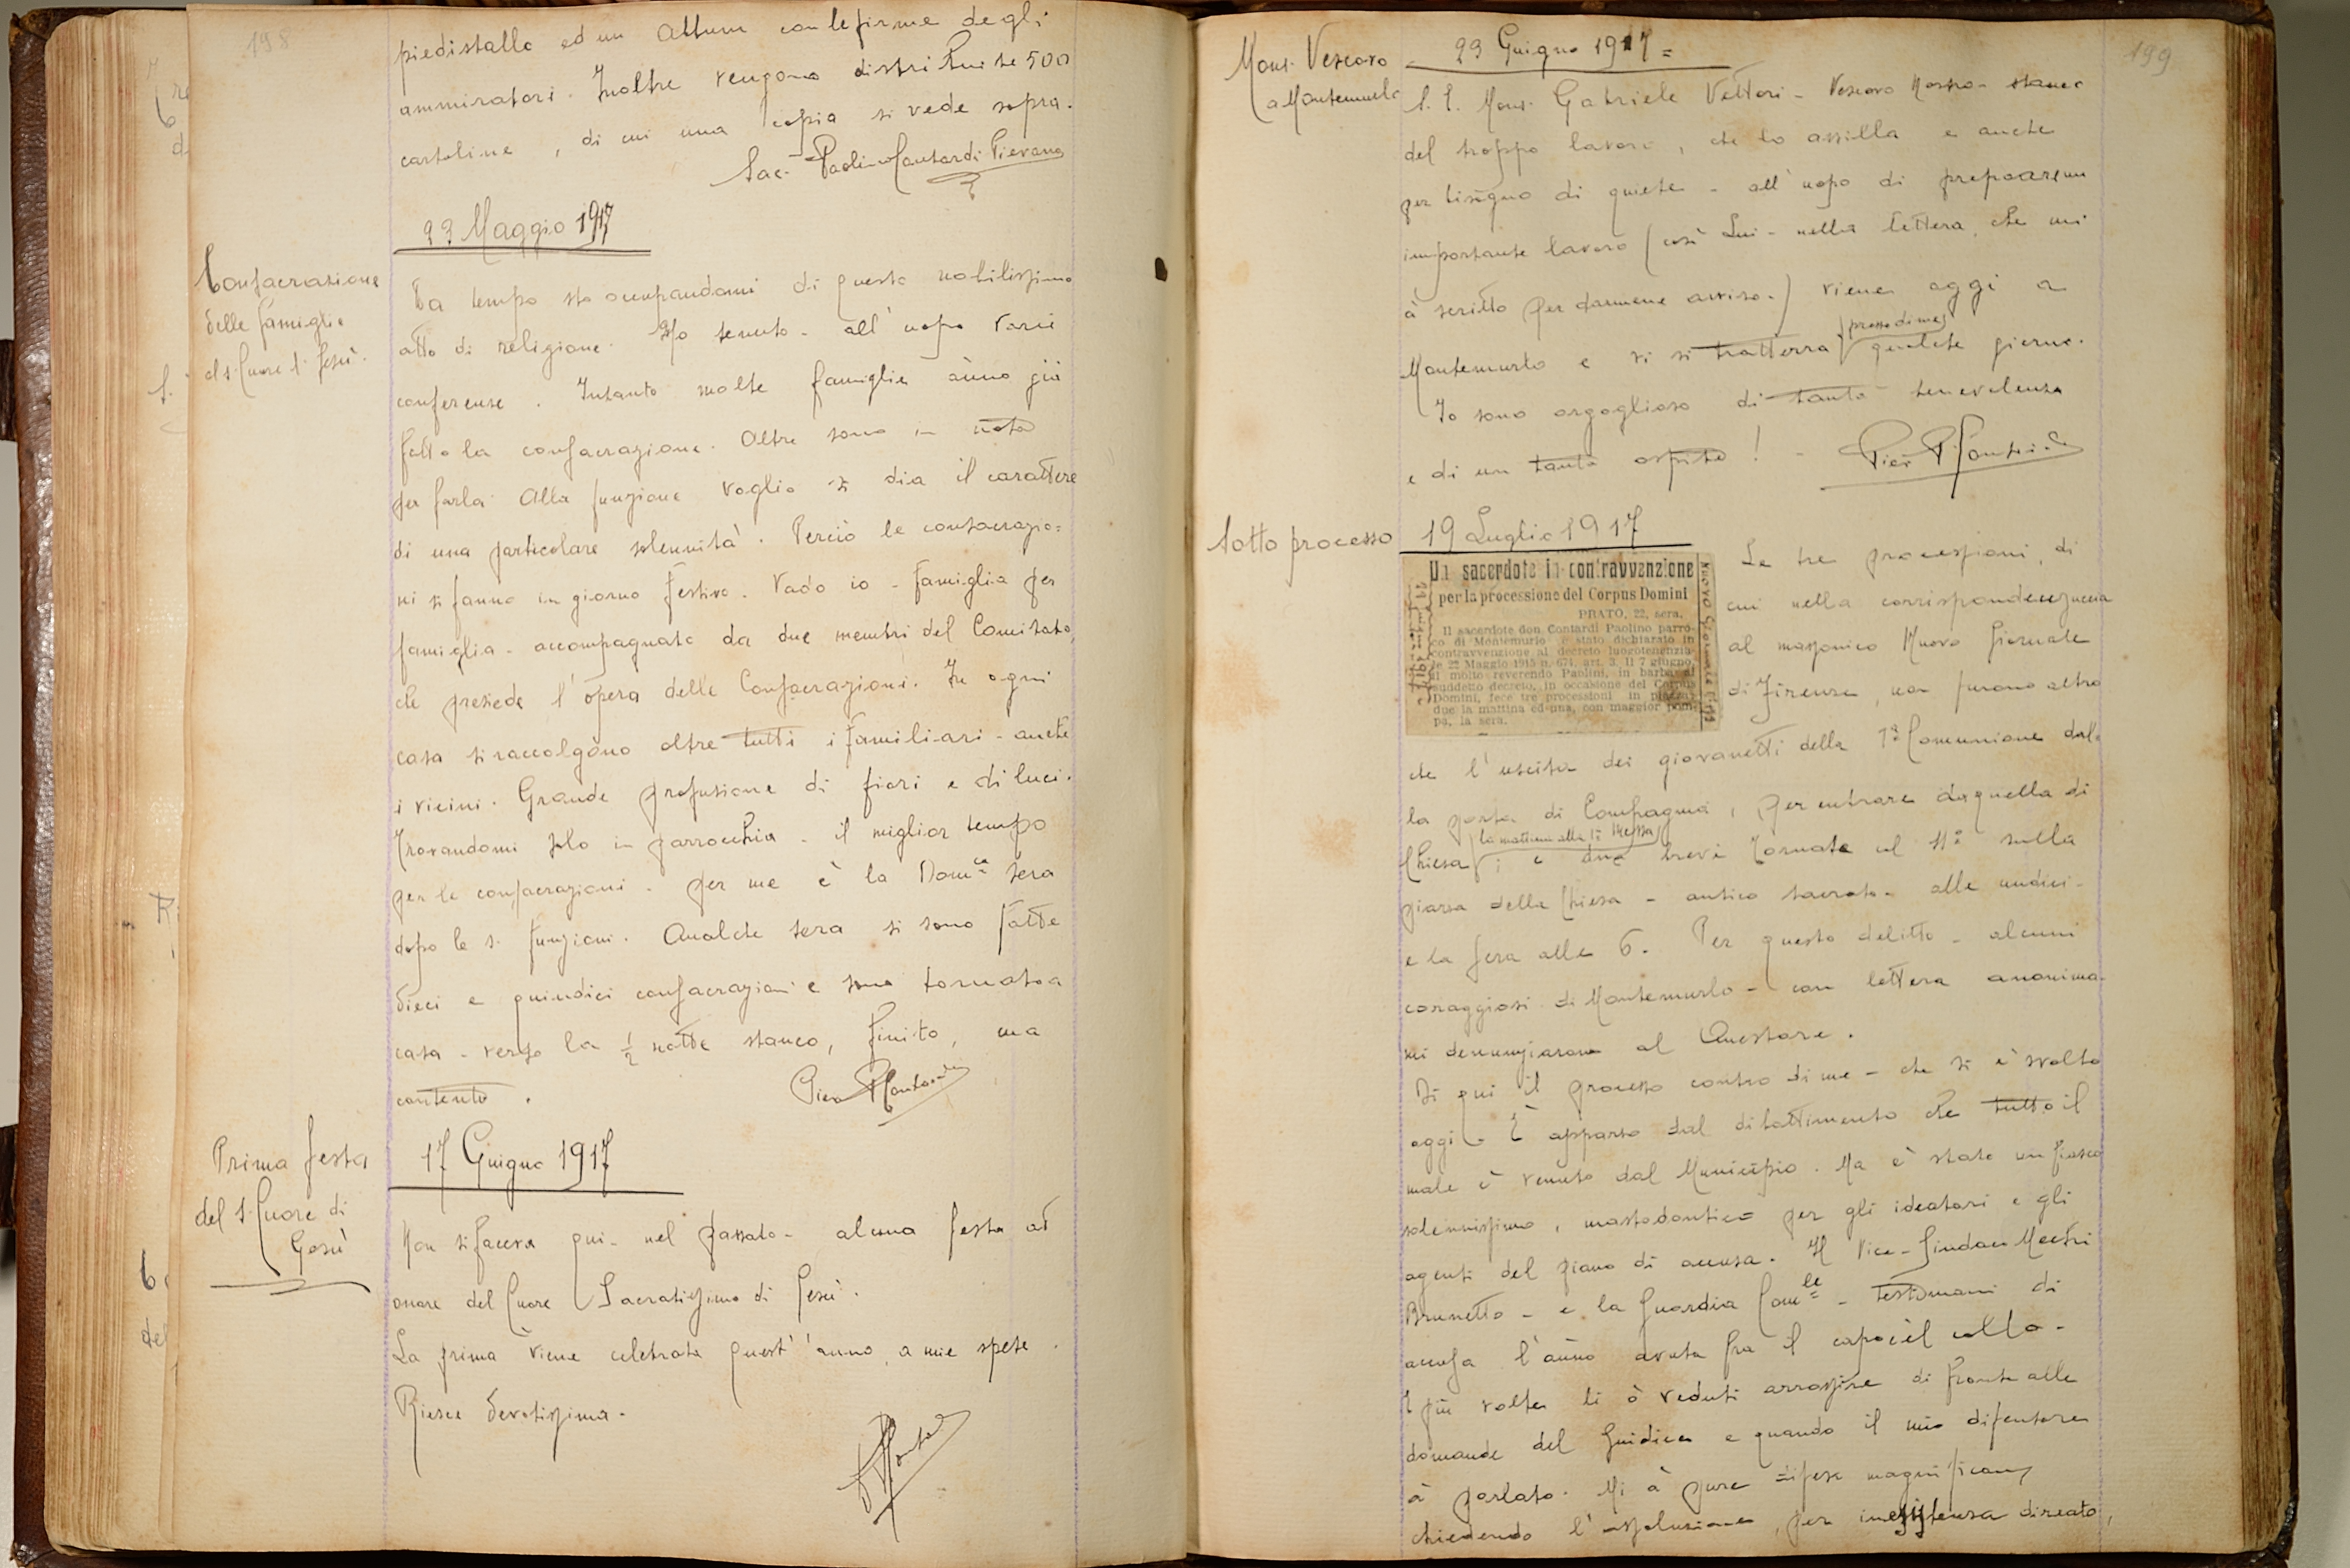 198
piedistallo ed un Album con le firme degli
ammiratori. Inoltre vengono distribuite 500
cartoline, di cui una copia si vede sopra.
Sac. Paolino Contardi Pievano
23 Maggio 1917
Consacrazione
delle famiglie
al s. Cuore d. Gesù.
Da tempo sto occupandomi di questo nobilissimo
atto di religione. Ho tenuto - all'uopo varie
conferenze. Intanto molte famiglie ànno già
fatto la consacrazione. Altre sono in nota
per farla. Alla funzione voglio si dia il carattere
di una particolare solennità. Perciò le consacrazio=
ni si fanno in giorno festivo. Vado io - famiglia per
famiglia - accompagnato da due membri del Comitato,
che presiede l'opera delle Consacrazioni. In ogni
casa si raccolgono oltre tutti i familiari - anche
i vicini. Grande profusione di fiori e di luci.
Trovandomi solo in parrocchia - il miglior tempo
per le consacrazioni - per me è la Dom.ca sera
dopo le s. funzioni. Qualche sera si sono fatte
dieci e quindici consacrazioni e sono tornato a
casa - verso la ½ notte stanco, finito, ma
contento.
Pier P Contardi
Prima festa
del S. Cuore di
Gesù
17 Giugno 1917
Non si faceva qui - nel passato - alcuna festa ad
onore del Cuore Sacratissimo di Gesù.
La prima viene celebrata quest'anno, a mie spese.
Riesce devotissima.
199
Mons. Vescovo
a Montemurlo
23 Giugno 1917 =
S. E. Mons. Gabriele Vettori - Vescovo Nostro - stanco
del troppo lavoro, che lo assilla e anche
per bisogno di quiete - all'uopo di preparare un
importante lavoro (così Lui - nella lettera, che mi
à scritto per darmene avviso.) viene oggi a
Montemurlo e vi si tratterrà (presso di me) qualche giorno.
Io sono orgoglioso di tanta benevolenza
e di un tanto ospite! -
Pier P. Contardi
Sotto processo
19 Luglio 1917
Un sacerdote in contravvenzione
per la processione del Corpus Domini
PRATO, 22, sera.
Il sacerdote don Contardi Paolino parro-
co di Montemurlo è stato dichiarato in
contravvenzione al decreto luogotenenzia-
le 22 Maggio 1915 n. 674, art. 3. Il 7 giugno,
il molto reverendo Paolini, in barba al
suddetto decreto, in occasione del Corpus
Domini, fece tre processioni in piazza:
due la mattina ed una, con maggior pom-
pa, la sera.
Nuovo Giornale
Le tre processioni, di
cui nella corrispondenzuccia
al massonico Nuovo Giornale
di Firenze, non furono altro
che l'uscita dei giovanetti della 1ª Comunione dal=
la porta di Compagnia, per entrare da quella di
Chiesa (la mattina alla 1ª Messa); e due brevi tornate sulla
piazza della Chiesa - antico sacrato - alle undici -
e la sera alle 6. Per questo delitto - alcuni
coraggiosi di Montemurlo - con lettera anonima -
mi denunziarono al Questore.
Di qui il processo contro di me - che si è svolto
oggi. È apparso dal dibattimento che tutto il
male è venuto dal Municipio. Ma è stato un fiasco
solennissimo, mastodontico per gli ideatori e gli
agenti del piano di accusa. Il Vice-Sindaco Mectri
Brunetto - e la Guardia Com.le - testimoni di
accusa l'ànno avuta fra il capo e il collo -
E più volte li ò veduti arrossire di fronte alle
domande del Giudice e quando il mio difensore
à parlato. Mi à pure difeso magnificam,
chiedendo l'assoluzione, per inesistenza di reato,